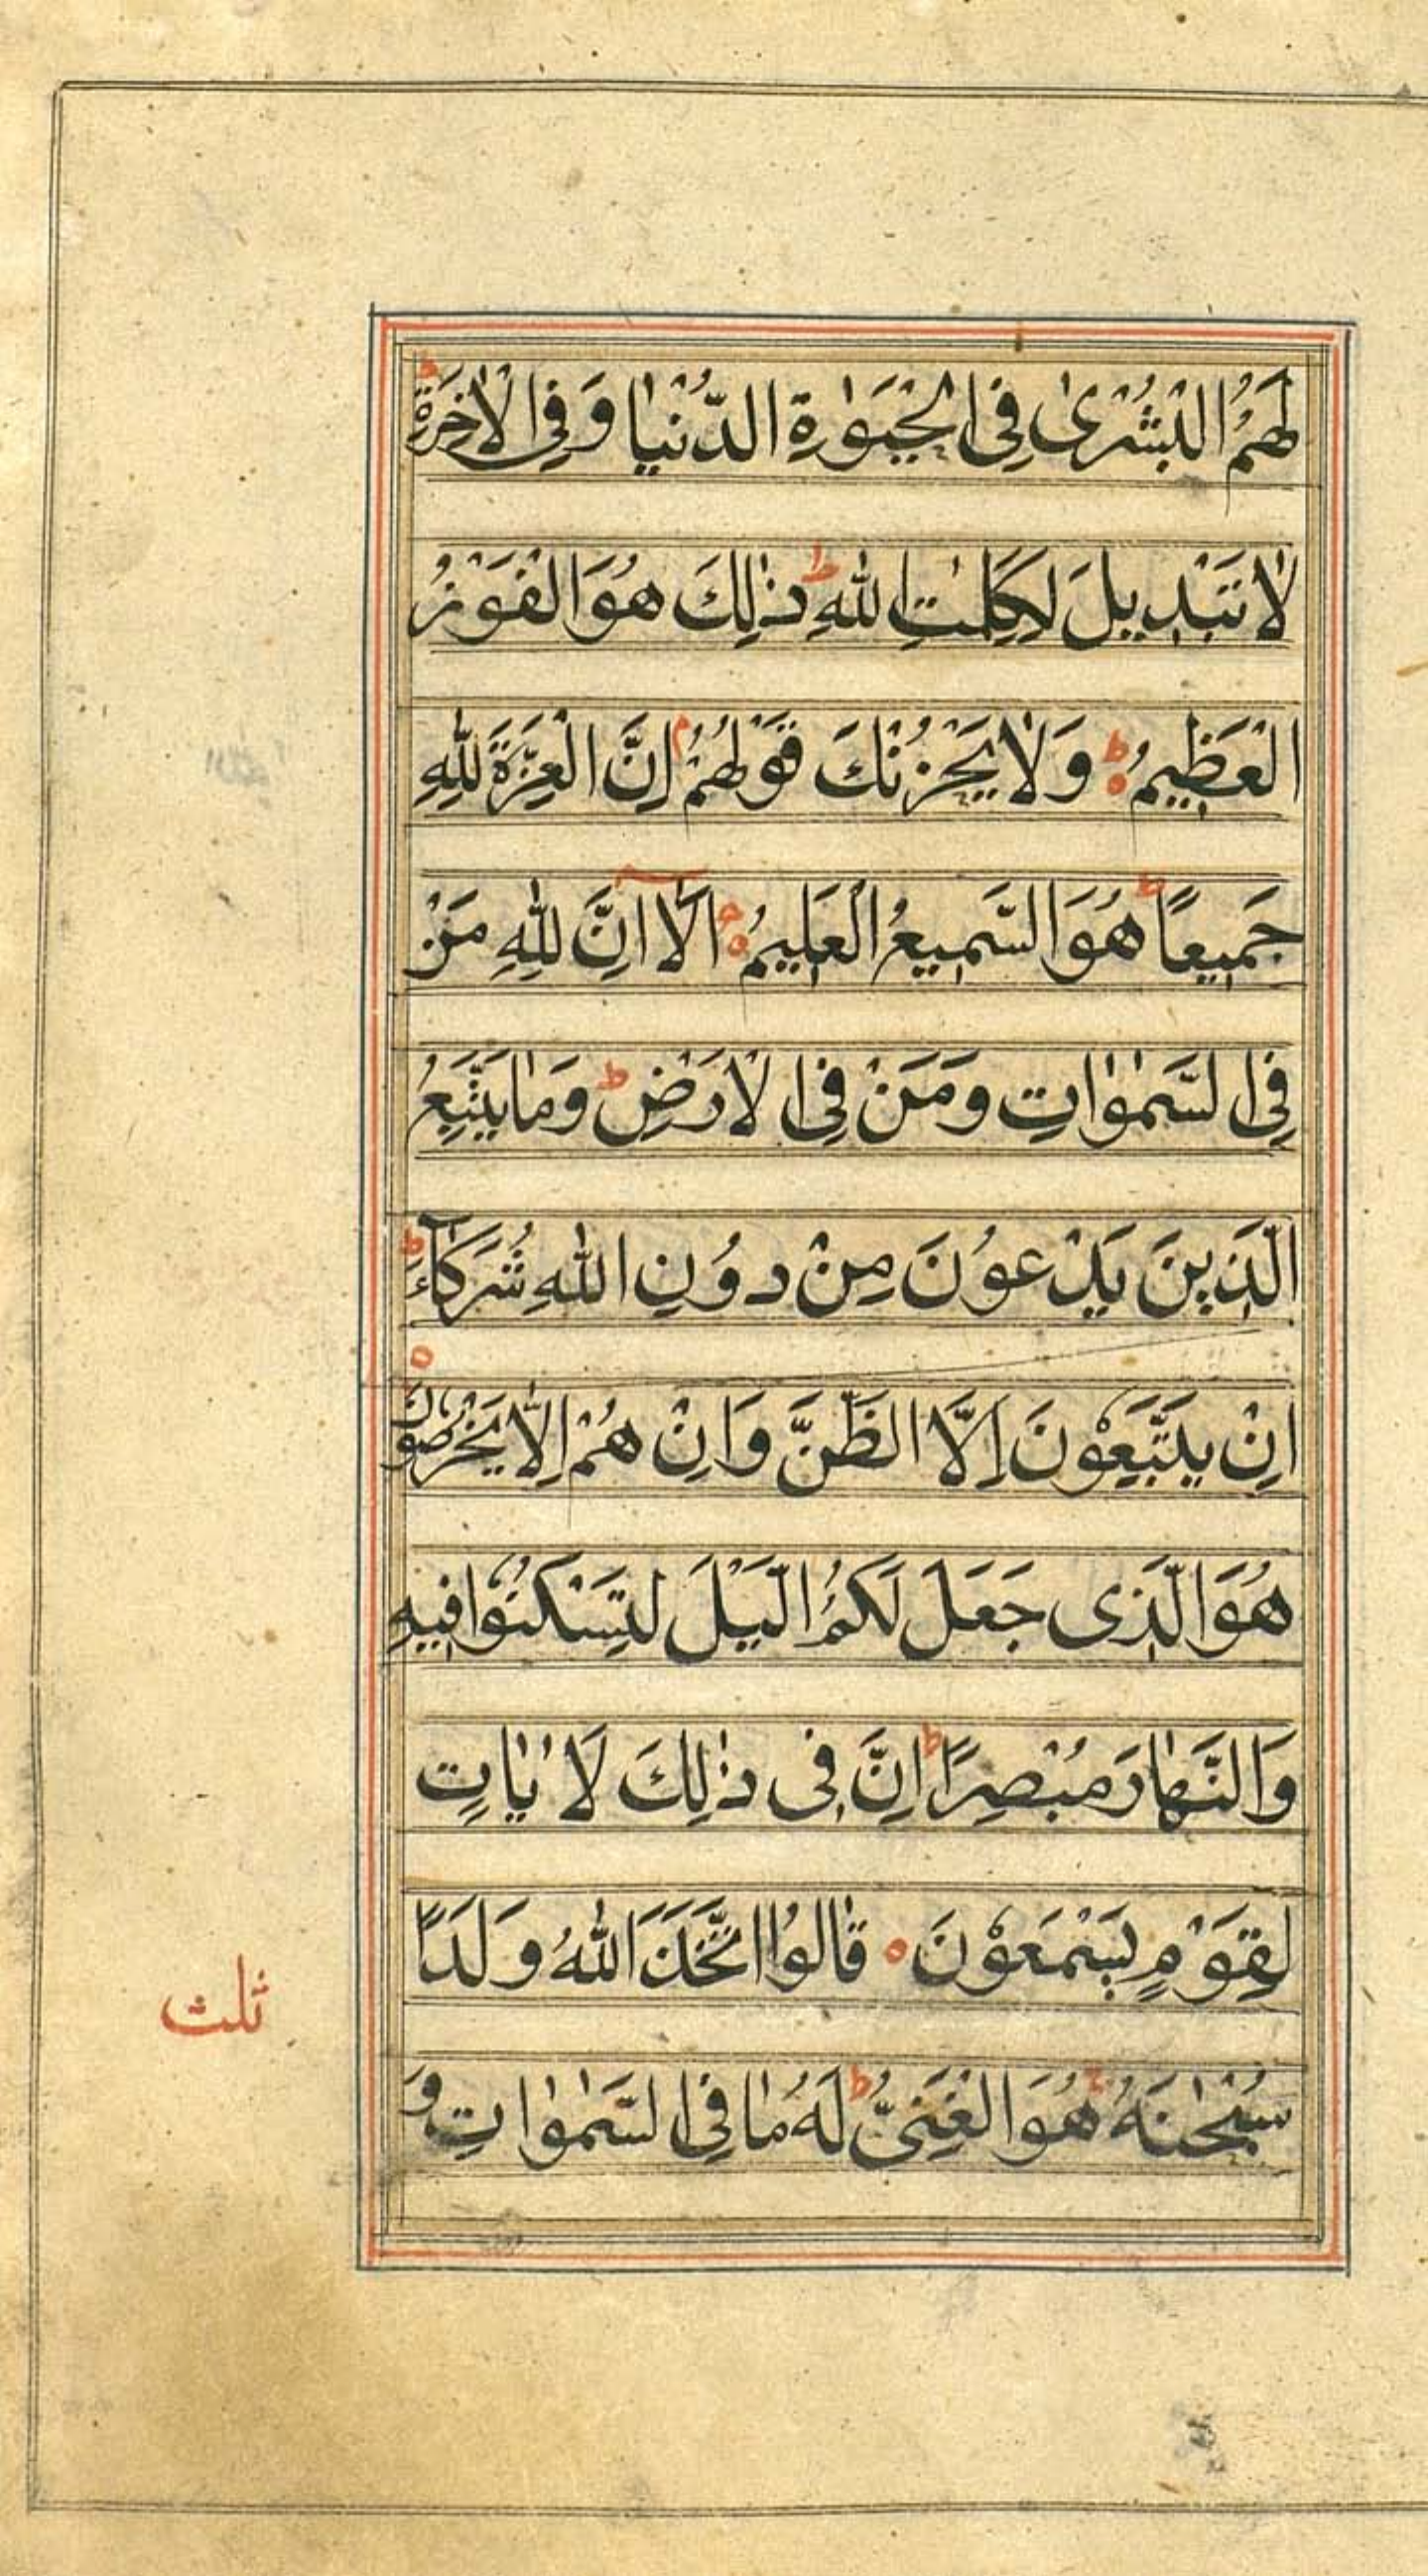 لَهُمُ الْبُشْرٰى فِى الْحَيَوٰةِ الدُّنْيٰا وَفِى الْاٰخِرَةِ ط
لٰا تَبْدِيلَ لِكَلِمٰتِ اللّٰهِ ط ذٰلِكَ هُوَ الْفَوْزُ
الْعَظِيمُ ط ه وَلٰا يَحْزُنْكَ قَوْلُهُمْ م اِنَّ الْعِزَّةَ لِلّٰهِ
جَمِيعًا ط هُوَ السَّمِيعُ الْعَلِيمُ ه اَلَآ اِنَّ لِلّٰهِ مَنْ
فِى السَّمٰوٰاتِ وَمَنْ فِى الْاَرْضِ ط وَمٰا يَتَّبِعُ
الَّذِينَ يَدْعُونَ مِنْ دُونِ اللّٰهِ شُرَكَآءَ ط
اِنْ يَتَّبِعُوْنَ اِلَّا الظَّنَّ وَاِنْ هُمْ اِلّٰا يَخْرُصُوْنَ ه
هُوَ الَّذِى جَعَلَ لَكُمُ الَّيْلَ لِتَسْكُنُوْا فِيهِ
وَالنَّهٰارَ مُبْصِرًا ط اِنَّ فِى ذٰلِكَ لَاٰيٰاتٍ
لِقَوْمٍ يَسْمَعُوْنَ ه قٰالُوا اتَّخَذَ اللّٰهُ وَلَدًا
سُبْحٰنَهُ ط هُوَ الْغَنِىُّ ط لَهُ مٰا فِى السَّمٰوٰاتِ وَ
ثلث